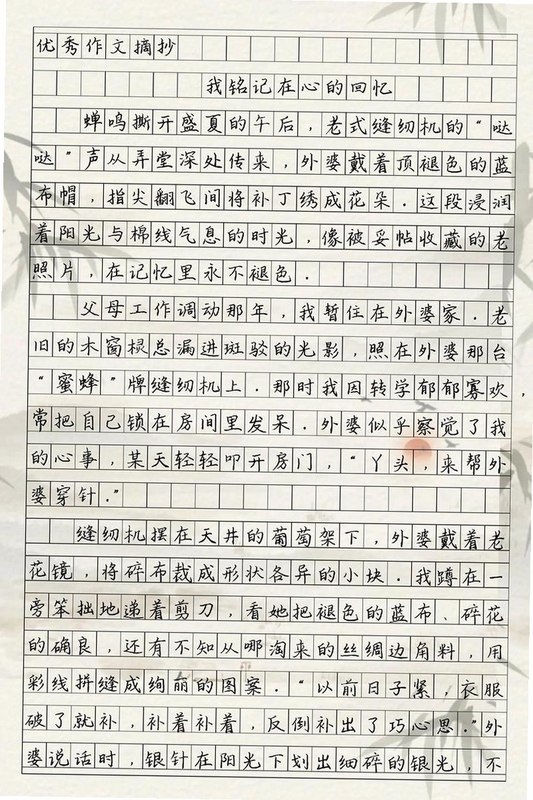 优秀作文摘抄
我铭记在心的回忆
蝉鸣撕开盛夏的午后，老式缝纫机的“哒
哒”声从弄堂深处传来，外婆戴着顶褪色的蓝
布帽，指尖翻飞间将补丁绣成花朵．这段浸润
着阳光与棉线气息的时光，像被妥帖收藏的老
照片，在记忆里永不褪色．
父母工作调动那年，我暂住在外婆家．老
旧的木窗棂总漏进斑驳的光影，照在外婆那台
“蜜蜂”牌缝纫机上．那时我因转学郁郁寡欢，
常把自己锁在房间里发呆．外婆似乎察觉了我
的心事，某天轻轻叩开房门，“丫头，来帮外
婆穿针．”
缝纫机摆在天井的葡萄架下，外婆戴着老
花镜，将碎布裁成形状各异的小块．我蹲在一
旁笨拙地递着剪刀，看她把褪色的蓝布、碎花
的确良，还有不知从哪淘来的丝绸边角料，用
彩线拼缝成绚丽的图案．“以前日子紧，衣服
破了就补，补着补着，反倒补出了巧心思．”外
婆说话时，银针在阳光下划出细碎的银光，不